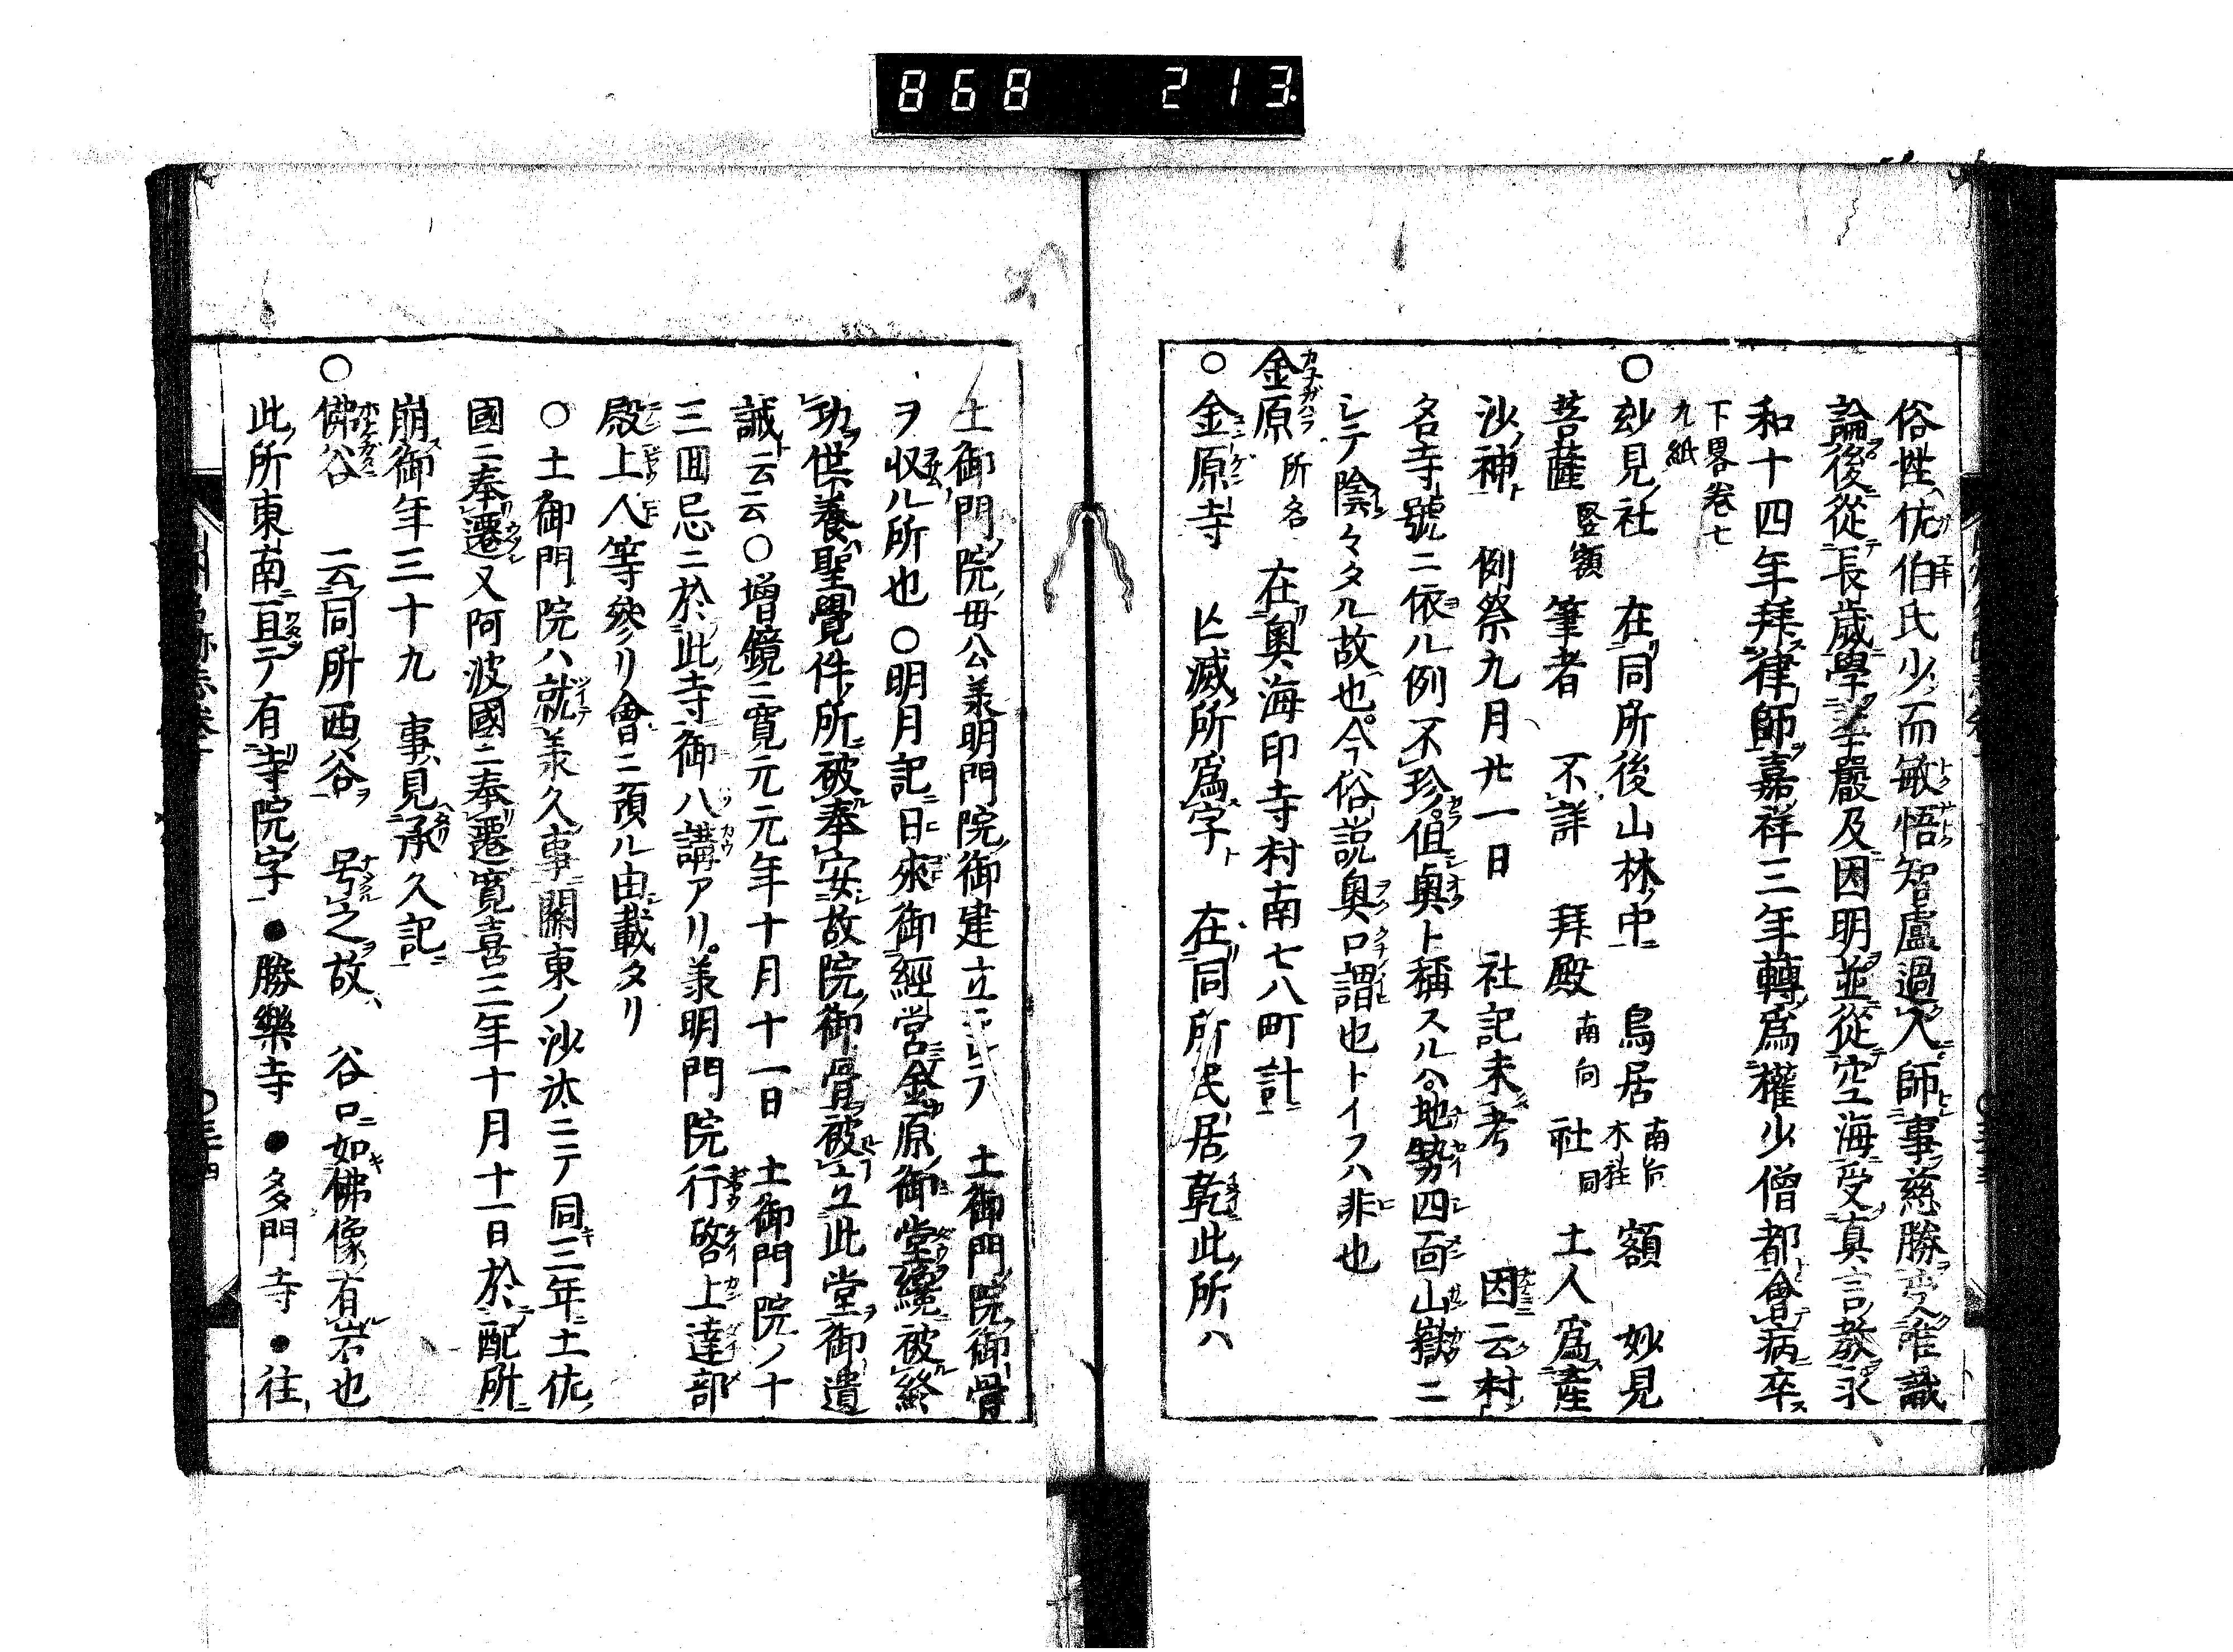 868 213
俗性佐伯氏少而敏悟智慮過人師事慈勝受唯識
論後從長歳學華嚴及因明並從空海受真言教承
和十四年拜律師嘉祥三年轉為權少僧都會病卒
下畧卷七
九紙
○玅見社 在同所後山林中 鳥居 南向 木柱 額 妙見
菩薩 竪額 筆者 不詳 拜殿 南向 社 同 土人為産
沙神 例祭九月廿一日 社記未考 因云村
名寺號ニ依ル例不珍但奥ト稱スルヘ地勢四面山嶽ニ
シテ陰々タル故也今俗説奥口謂也トイフハ非也
金原 所名 在奥海印寺村南七八町計
○金原寺 亡滅所為字 在同所民居乾此所ハ
土御門院母公羕明門院御建立ニシテ 土御門院御骨
ヲ収ル所也○明月記曰來御經営金原御堂纔被終
功供養聖覺件所被奉安故院御骨被立此堂御遺
誡云云○増鏡ニ寛元元年十月十一日 土御門院ノ十
三囬忌ニ於此寺御八講アリ羕明門院行啓上達部
殿上人等參リ會ニ預ル由載タリ
○土御門院ハ就羕久事関東ノ沙汰ニテ同三年土佐
國ニ奉遷又阿波國ニ奉遷寛喜三年十月十一日於配所
崩御年三十九 事見承久記
○佛谷 云同所西谷 号之故 谷口如佛像有岩也
此所東南亘テ有寺院字●勝樂寺●多門寺●往